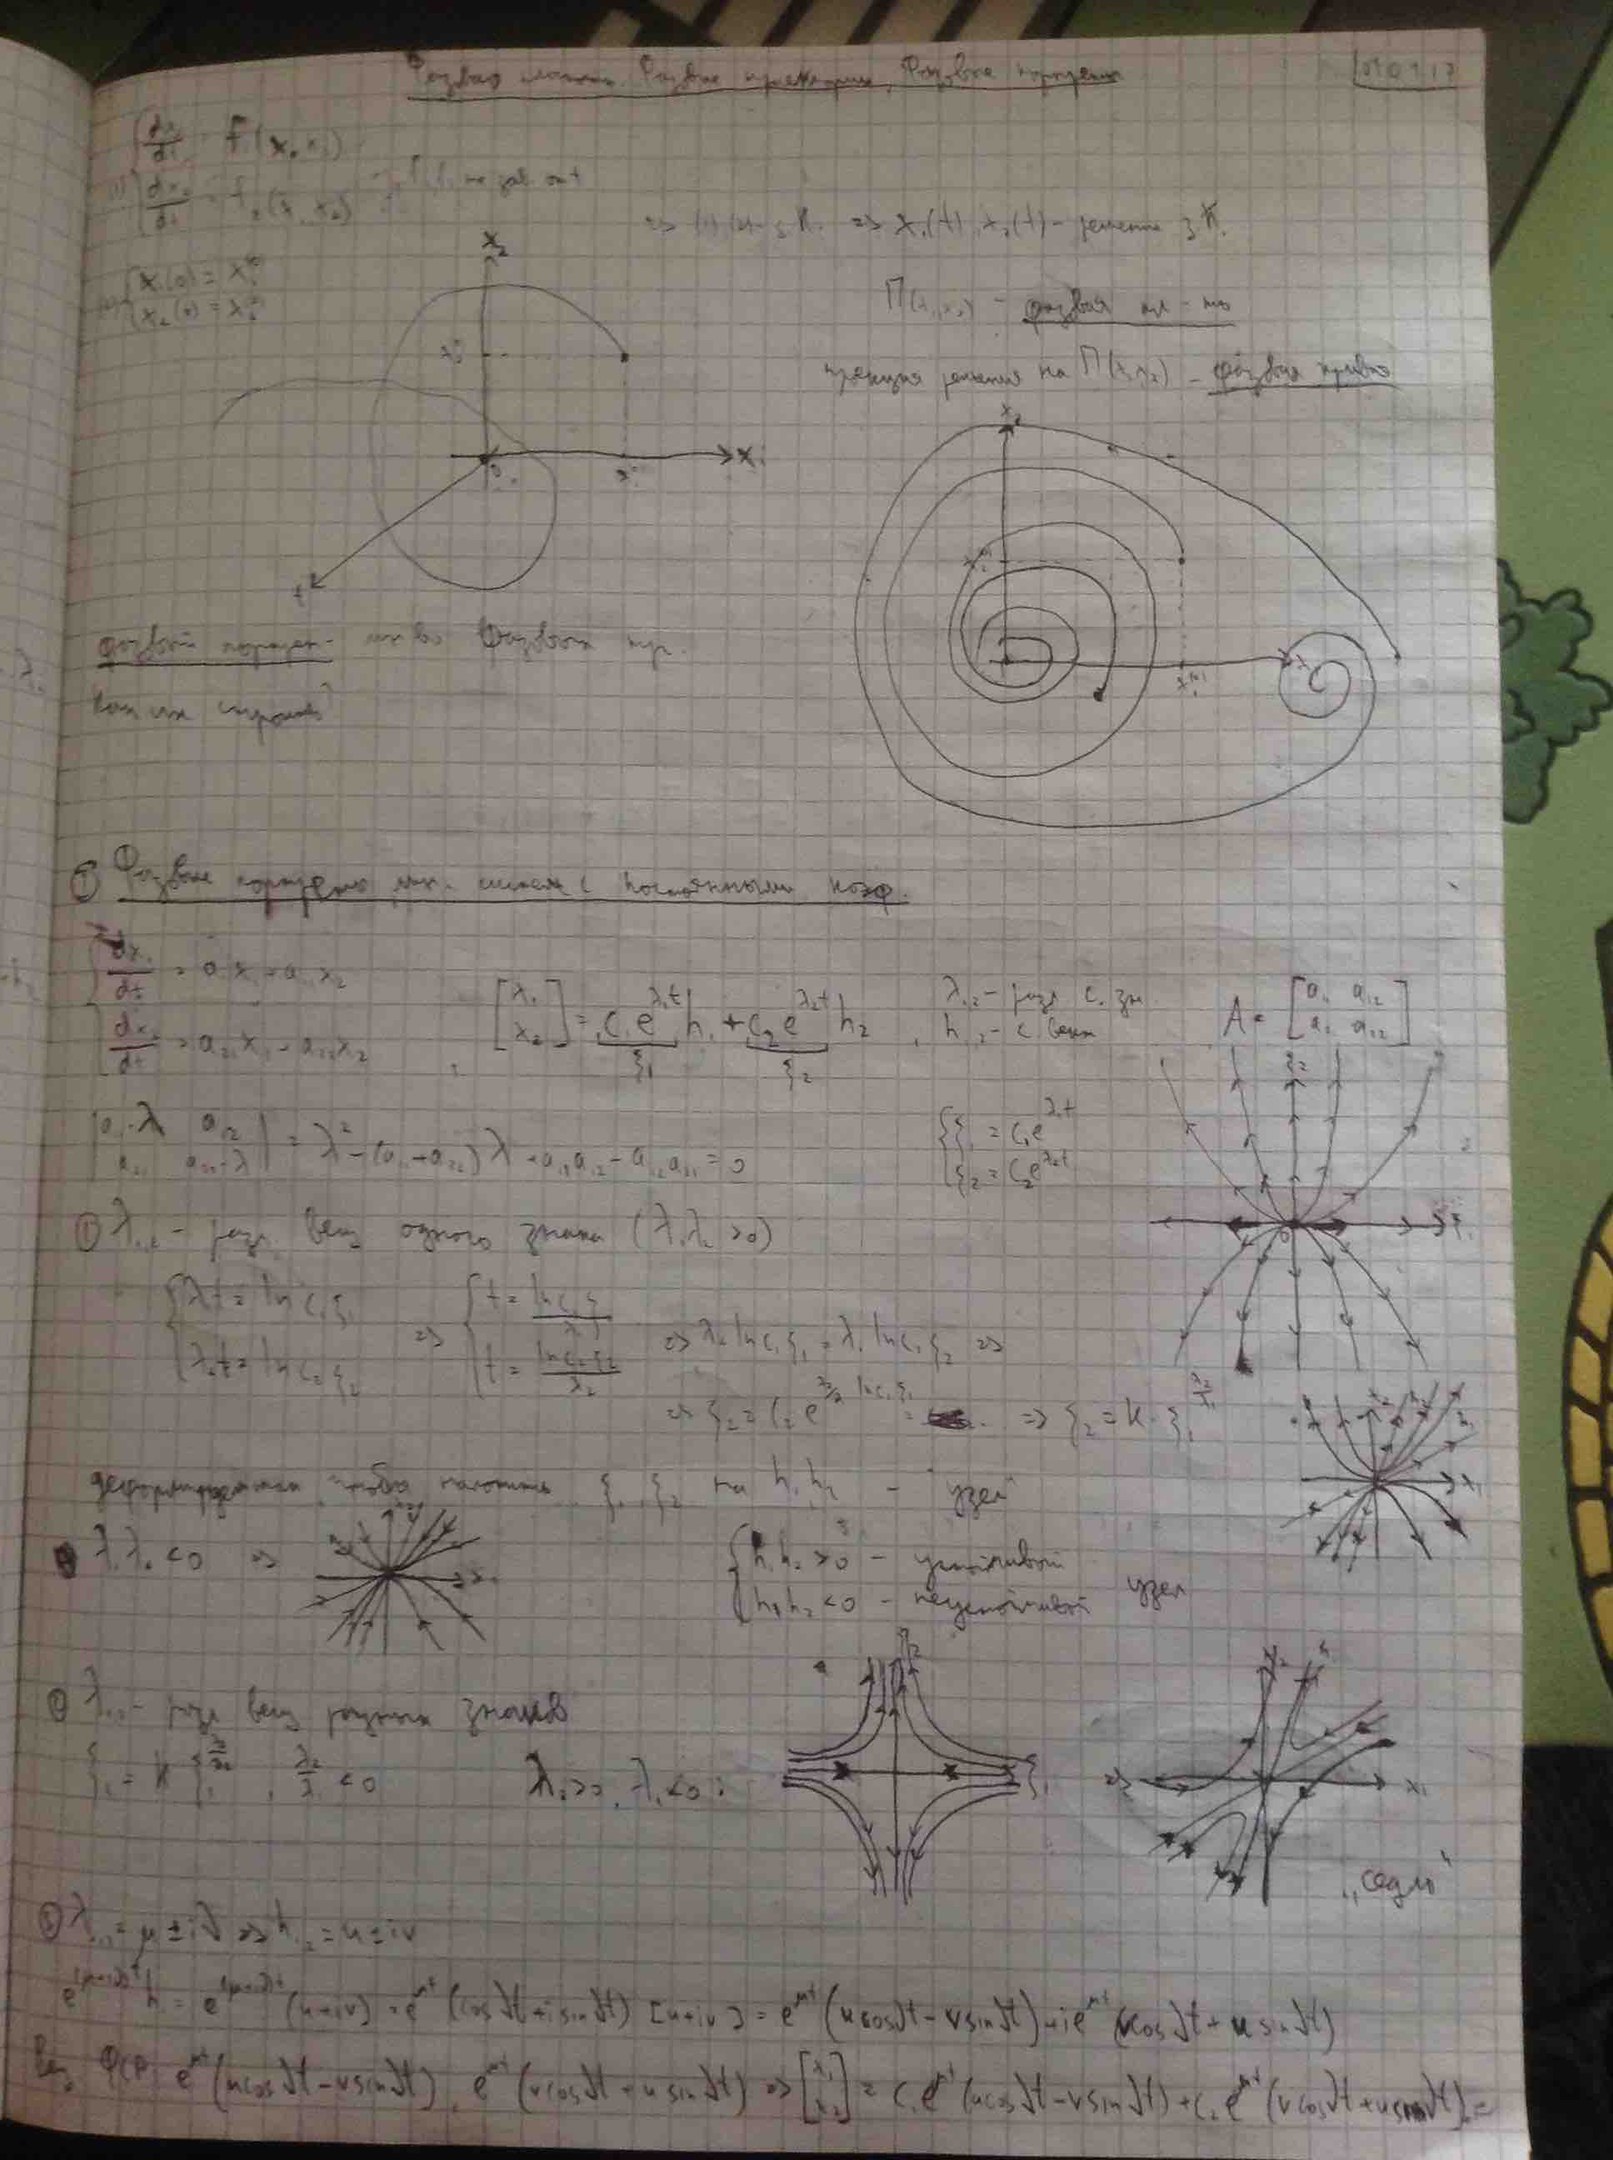 Фазовая плоскость. Фазовые траектории. Фазовые портреты
(1) { dx₁/dt = f₁(x₁, x₂)
dx₂/dt = f₂(x₁, x₂) не зав. от t
=> (1), (2) - з.К. => x₁(t), x₂(t) - решение з.К.
{ x₁(0) = x₁⁰
x₂(0) = x₂⁰
П(x₁,x₂) - фазовая пл-ть
проекция решения на П(x₁x₂) - фазовая кривая
x₂
x₁
t
фазовый портрет - мн-во фазовых кр.
Как их строить?
① Фазовые портреты лин. систем с постоянными коэф.
dx₁/dt = a₁₁x₁ + a₁₂x₂
dx₂/dt = a₂₁x₁ + a₂₂x₂
[x₁ x₂] = c₁e^{λ₁t}h₁ + c₂e^{λ₂t}h₂ ,
ξ₁ ξ₂
λ₁,₂ - разл. с. зн
h₁,₂ - с. век
A = [a₁₁ a₁₂ a₂₁ a₂₂]
|a₁₁-λ a₁₂ a₂₁ a₂₂-λ| = λ² - (a₁₁+a₂₂)λ + a₁₁a₂₂ - a₁₂a₂₁ = 0
{ ξ₁ = c₁e^{λ₁t}
ξ₂ = c₂e^{λ₂t}
① λ₁,₂ - разл. вещ. одного знака (λ₁λ₂ > 0)
{ λ₁t = ln c₁ξ₁
λ₂t = ln c₂ξ₂
=> { t = ln c₁ξ₁ / λ₁
t = ln c₂ξ₂ / λ₂
=> λ₂ ln c₁ξ₁ = λ₁ ln c₂ξ₂ =>
=> ξ₂ = c₂ e^{λ₂/λ₁ ln c₁ξ₁} = => ξ₂ = K · ξ₁^{λ₂/λ₁}
ξ₁, ξ₂ на h₁, h₂ - "узел"
λ₁λ₂ < 0 =>
{ h₁h₂ > 0 - устойчивый
h₁h₂ < 0 - неустойчивый узел
② λ₁,₂ - разл вещ разных знаков
λ₂/λ₁ < 0
λ₂ > 0, λ₁ < 0 :
=>
„седло"
③ λ₁,₂ = μ ± iν => h₁,₂ = u ± iv
e^{(μ+iν)t} h = e^{(μ+iν)t} (u+iv) = e^{μt} (cos νt + i sin νt) [u+iv] = e^{μt} (u cos νt - v sin νt) + i e^{μt} (v cos νt + u sin νt)
Вещ. ФСР: e^{μt} (u cos νt - v sin νt), e^{μt} (v cos νt + u sin νt) => [x₁ x₂] = c₁e^{μt} (u cos νt - v sin νt) + c₂e^{μt} (v cos νt + u sin νt) =